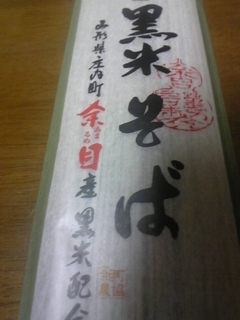 黒米そば
山形県庄内町
余目産黒米配合
あまるめ